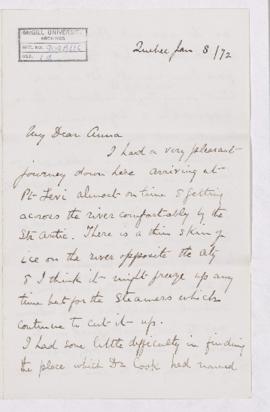 McGILL UNIVERSITY
ARCHIVES
ACC. NO.
REF.
Quebec Jan 8/72
My Dear Anna
I had a very pleasant
journey down here arriving at
Pt Levi almost on time & getting
across the river comfortably by the
Str Arctic. There is a thin skim of
ice on the river opposite the city
& I think it might freeze up any
time but for the Steamers which
continue to cut it up.
I had some little difficulty in finding
the place which Dr Cook had named